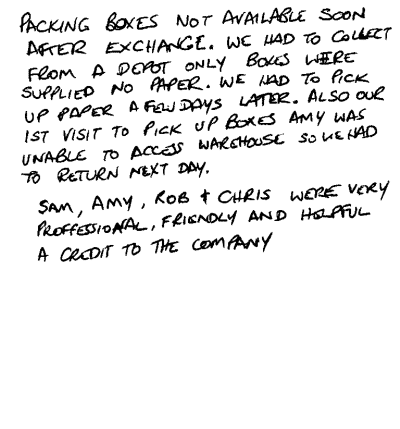 PACKING BOXES NOT AVAILABLE SOON
AFTER EXCHANGE. WE HAD TO COLLECT
FROM A DEPOT ONLY BOXES WERE
SUPPLIED NO PAPER. WE HAD TO PICK
UP PAPER A FEW DAYS LATER. ALSO OUR
1ST VISIT TO PICK UP BOXES AMY WAS
UNABLE TO ACCESS WAREHOUSE SO WE HAD
TO RETURN NEXT DAY.
SAM, AMY, ROB & CHRIS WERE VERY
PROFFESSIONAL, FRIENDLY AND HELPFUL
A CREDIT TO THE COMPANY